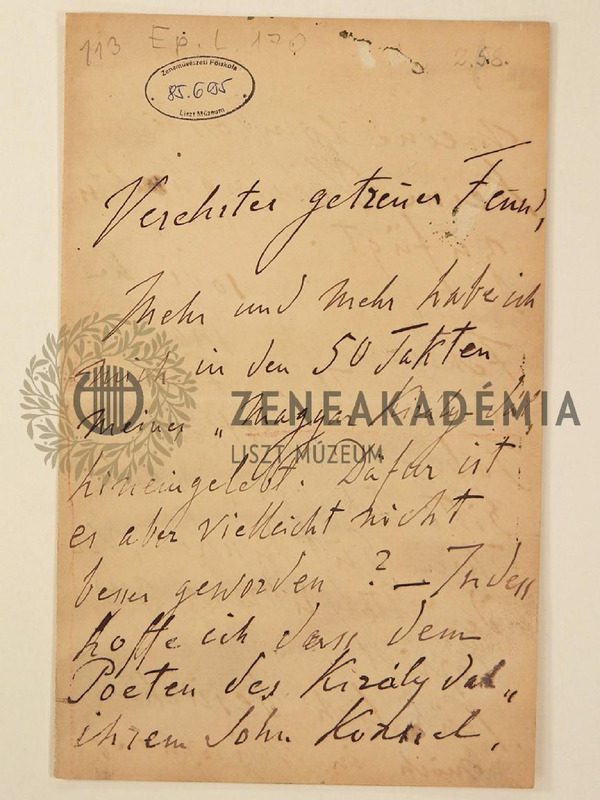 113 Ep. L. 170
2.5.8.
Zeneművészeti Főiskola
85.695
Liszt Múzeum
Verehrter getreuer Freund,
Mehr und mehr habe ich
mich in den 50 Takten
meines „Magyar Király-dal
hineingelebt. Dafür ist
es aber vielleicht nicht
besser geworden? — Indess
hoffe ich dass dem
Poeten des Király dal„
ihrem Sohn Kornel,
ZENEAKADÉMIA
LISZT MÚZEUM